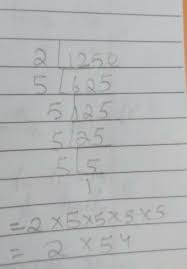 2 | 1250
5 | 625
5 | 125
5 | 25
5 | 5
1
= 2 × 5 × 5 × 5 × 5
= 2 × 5⁴